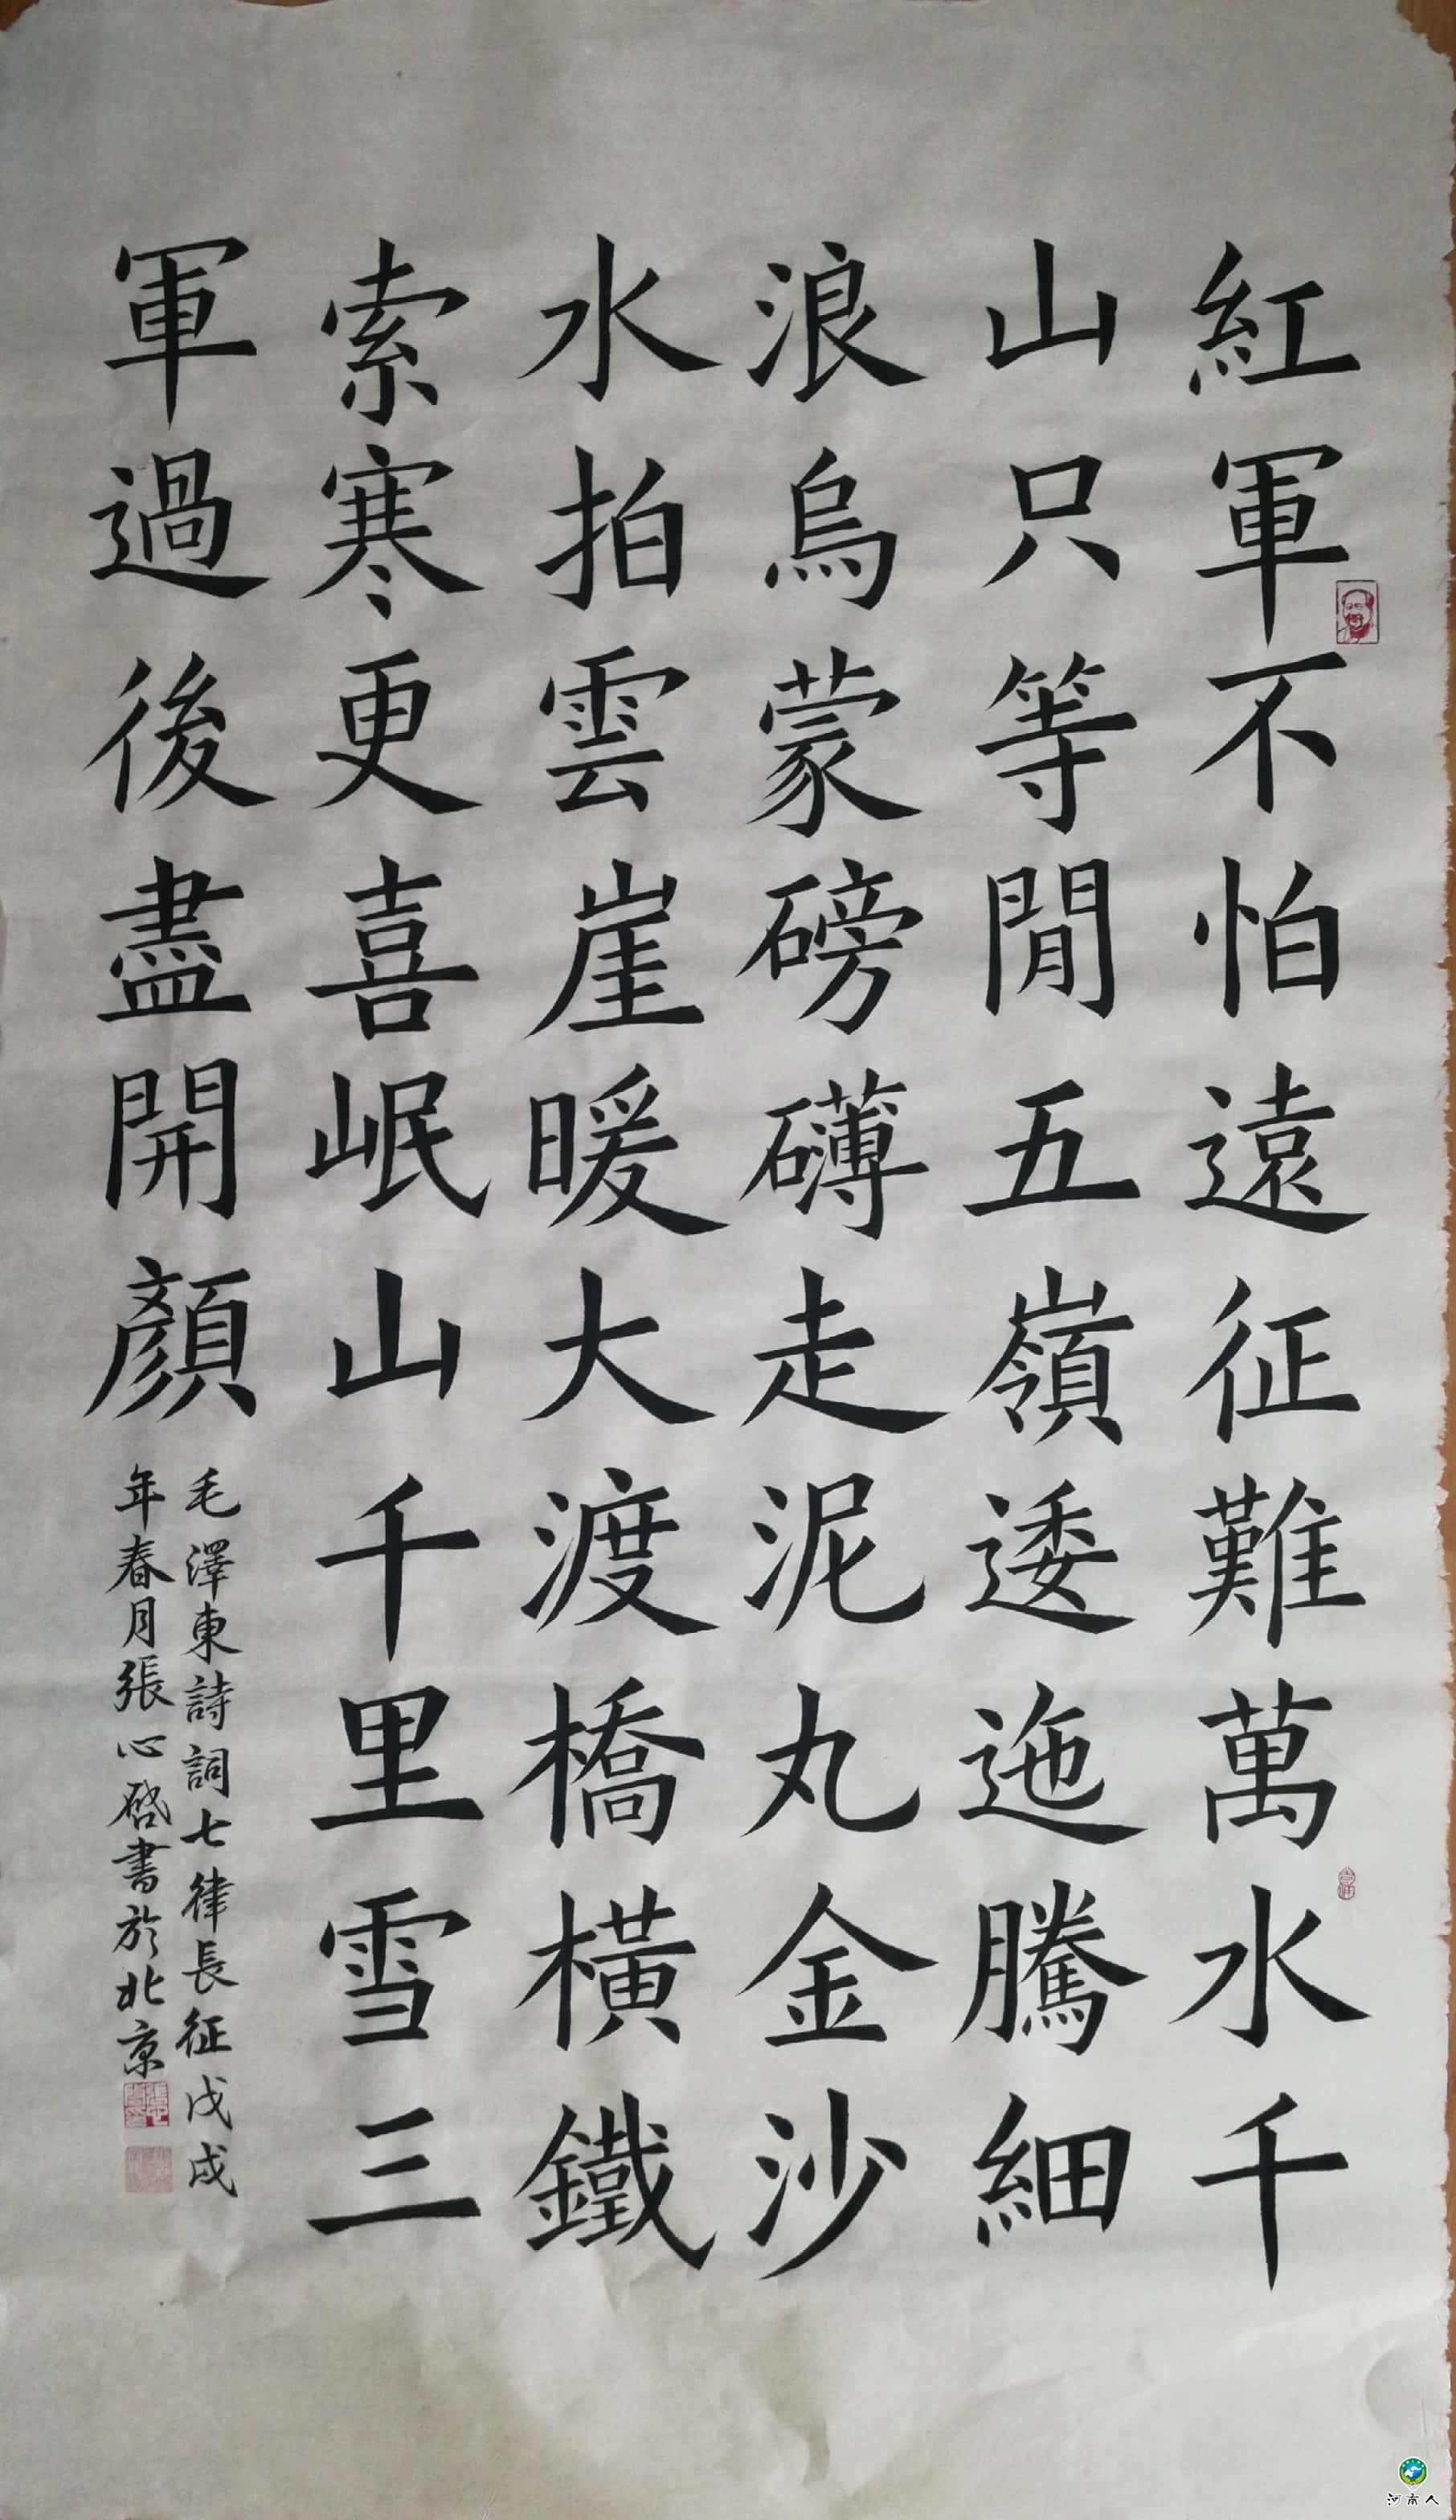 紅軍不怕遠征難萬水千
山只等閒五嶺逶迤騰細
浪烏蒙磅礴走泥丸金沙
水拍雲崖暖大渡橋橫鐵
索寒更喜岷山千里雪三
軍過後盡開顏
毛澤東詩詞七律長征戊戌
年春月張心啓書於北京
河南人